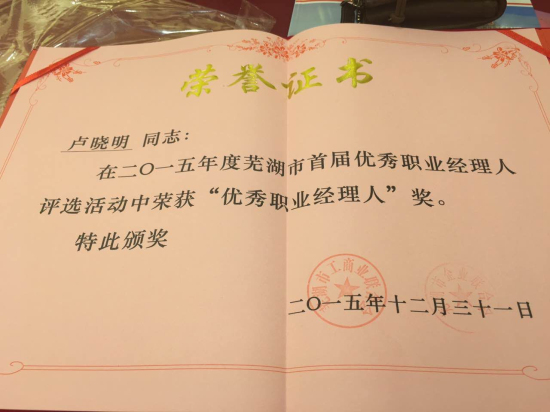 荣誉证书
卢晓明 同志:
在二〇一五年度芜湖市首届优秀职业经理人
评选活动中荣获“优秀职业经理人”奖。
特此颁奖
芜湖市工商业联合会
二〇一五年十二月三十一日